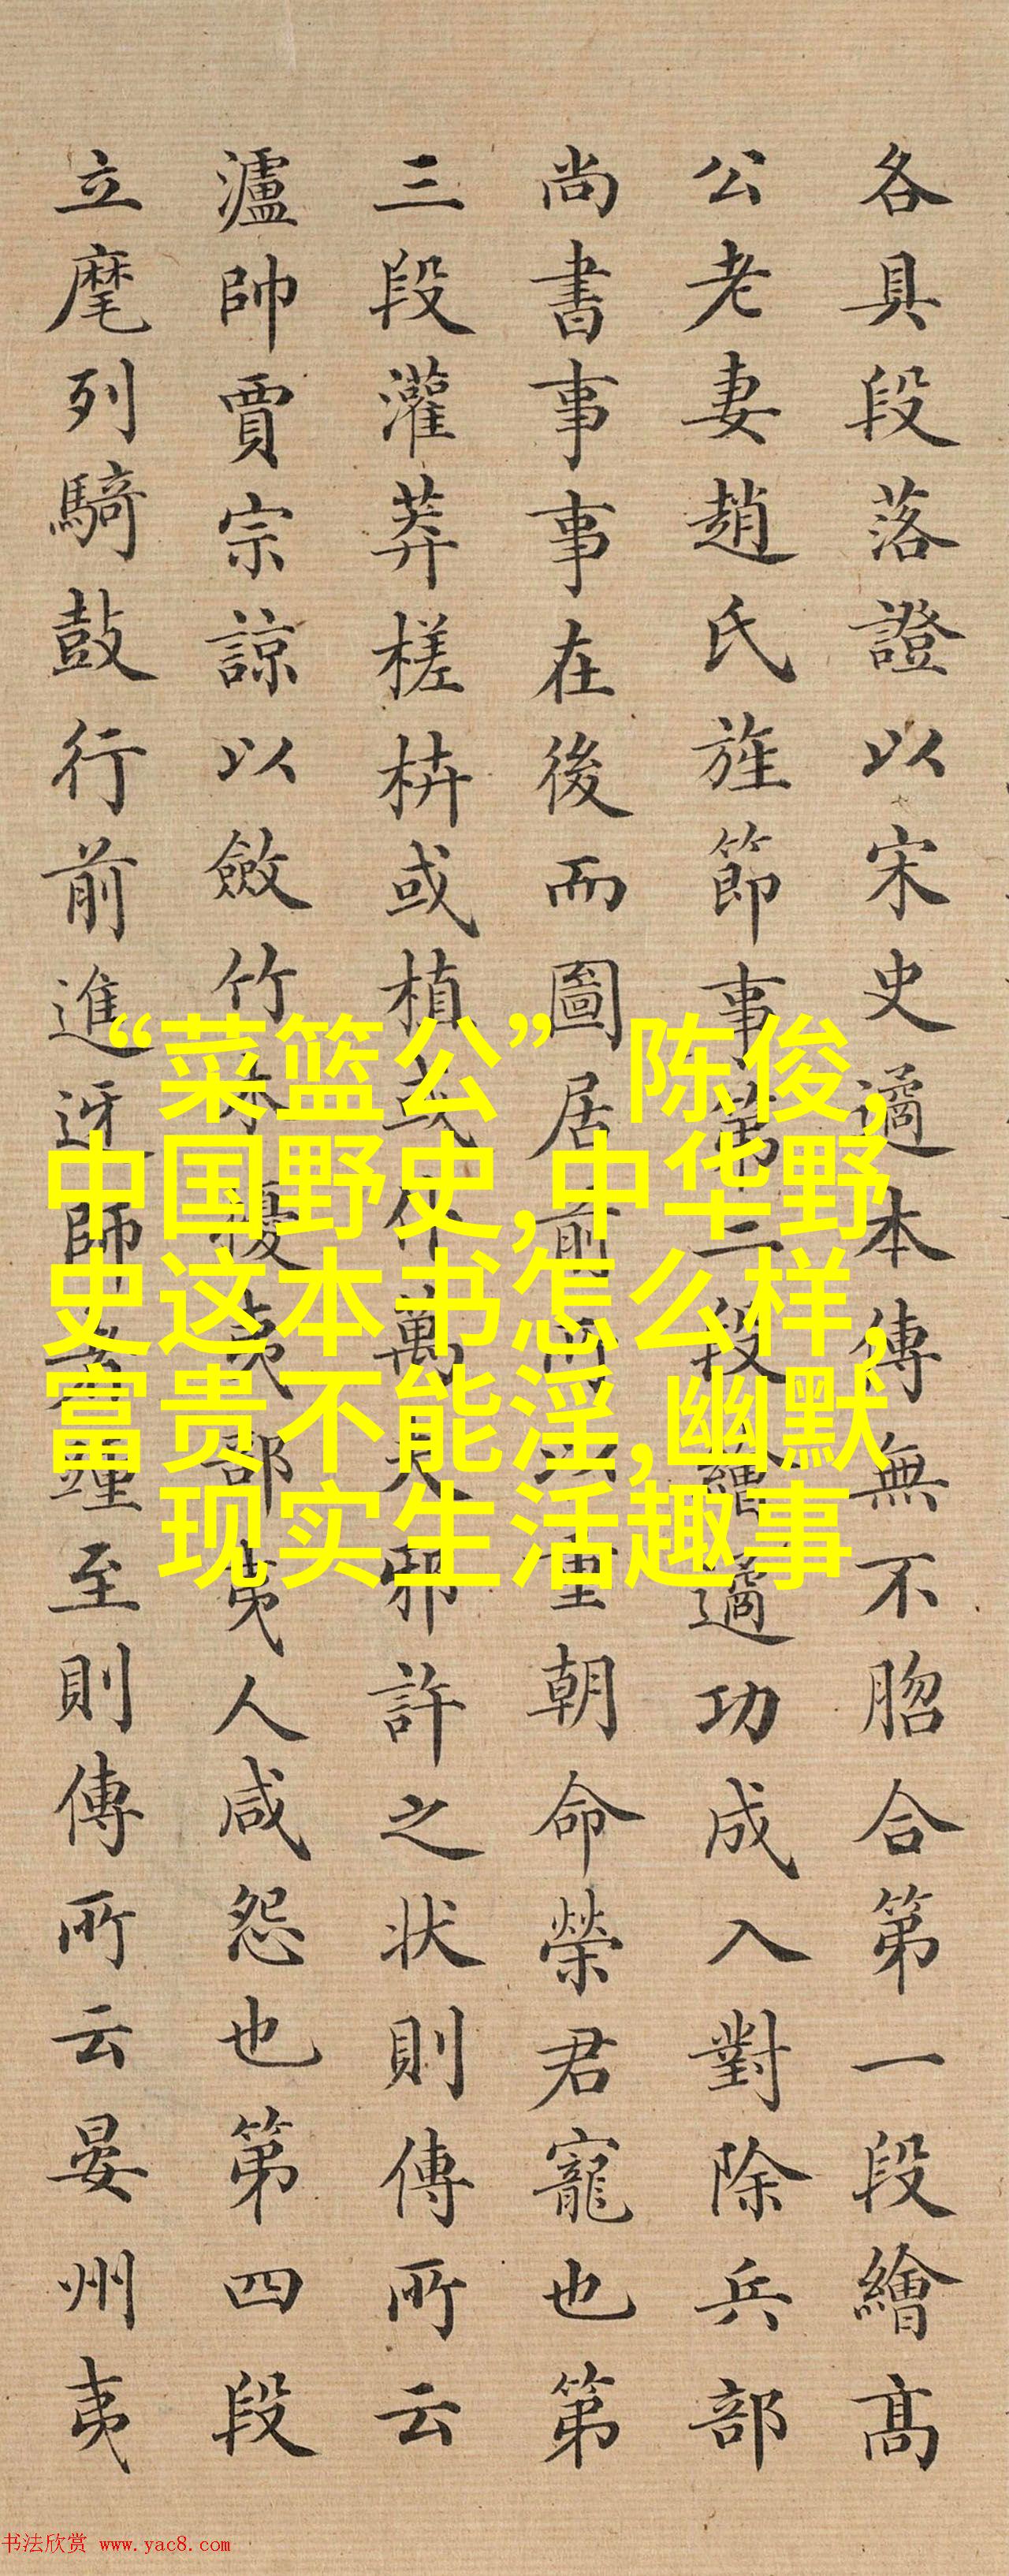 各具段落證以宋史遹本傳無不脗合第一段繪高
公老妻趙氏旌節事第二段繪遹功成入對除兵部
尚書事事在後而圖居前以重朝命榮君寵也第
三段灌莽槎枿或植或仆萬夫邪許之状則傳所云
瀘帥賈宗諒以斂竹木擾夷部夷人咸怨也第四段
立麾列騎鼓行前進迓師至則傳所云晏州夷
“菜篮公”陈俊,
中国野史,中华野
史这本书怎么样,
富贵不能淫,幽默
现实生活趣事
书法欣赏 www.yac8.com